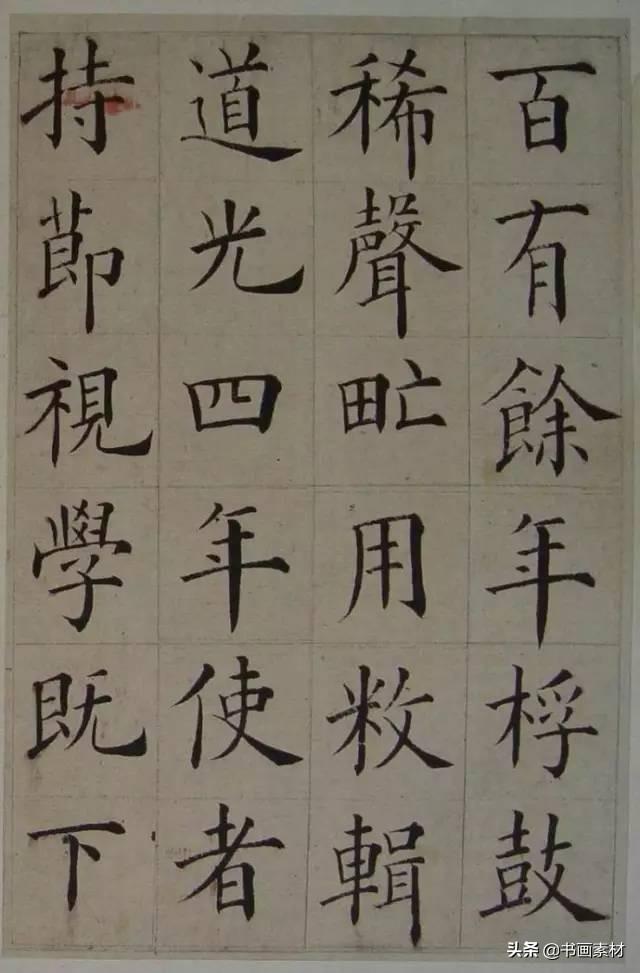 百有餘年桴鼓
稀聲甿用敉輯
道光四年使者
持節視學既下
头条 @书画素材